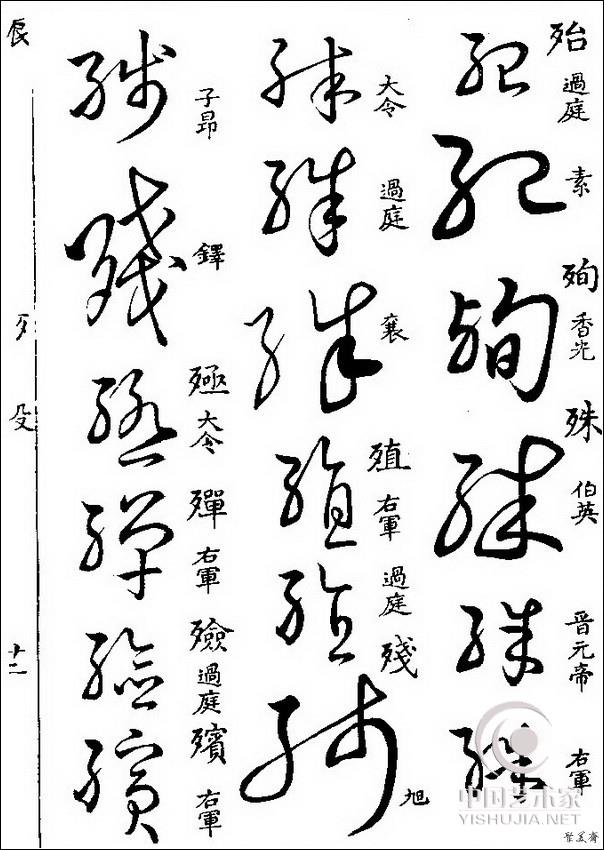 殆 過庭
素
殉 香光
殊 伯英
晋元帝
右軍
大令
過庭
襄
殖 右軍
過庭
殘 旭
子昂
鐸
殛 大令
殫 右軍
殮 過庭
殯 右軍
辰
歹
殳
十二
中国艺术家
YISHUJIA.NET